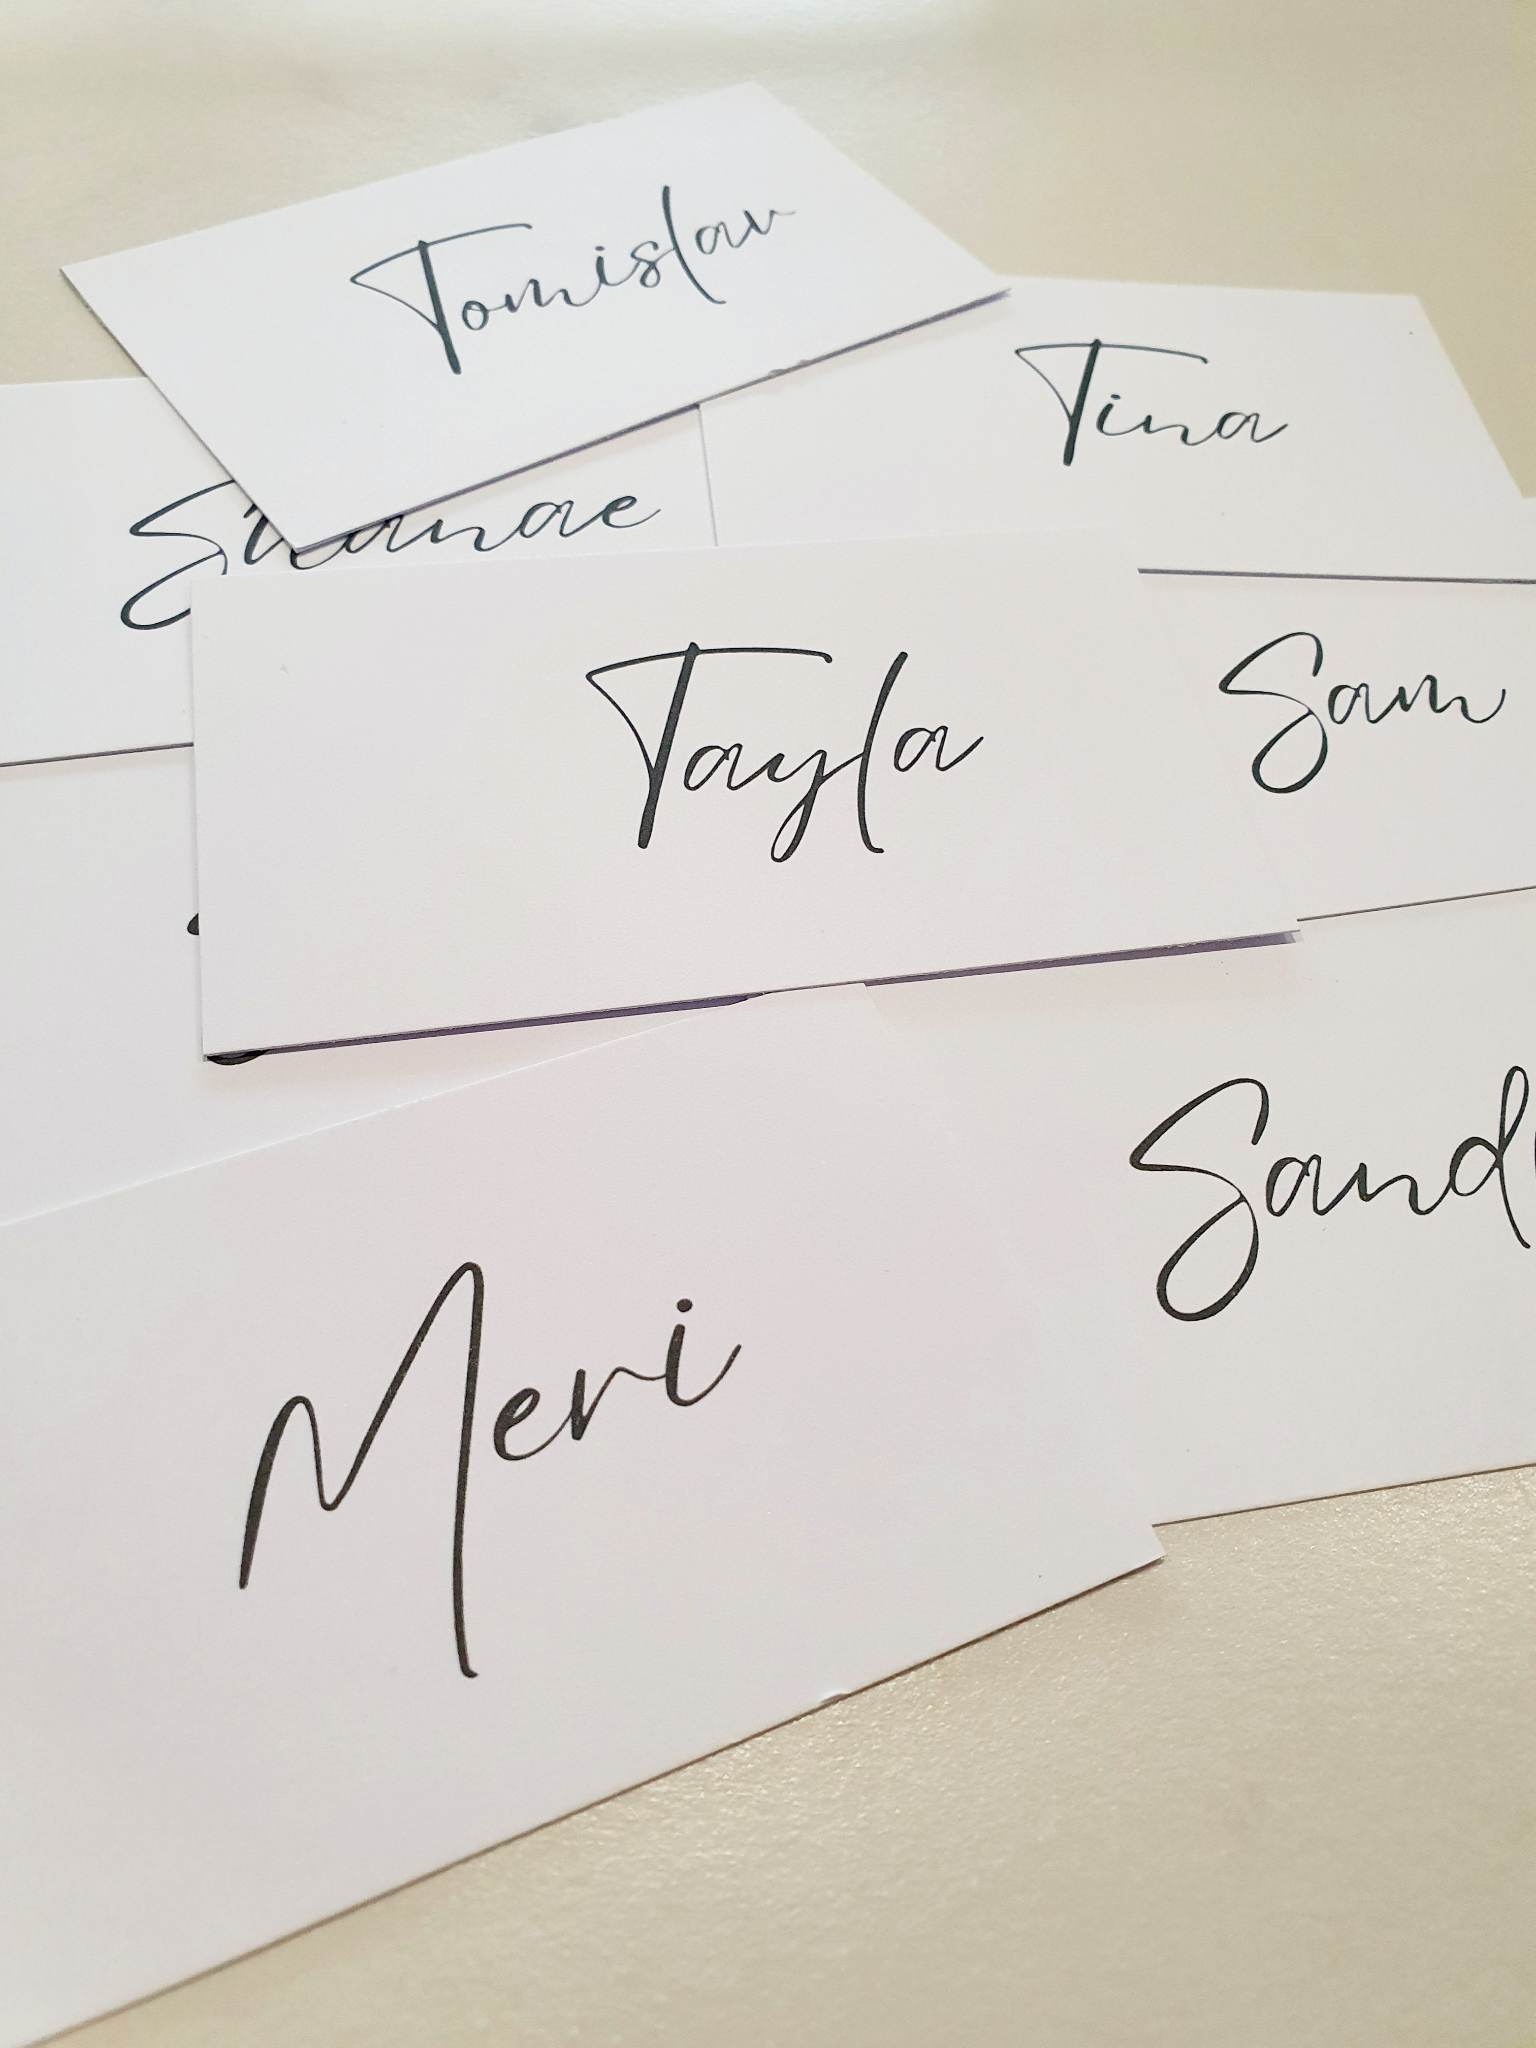 Tomislav
Tina
Shanae
Tayla
Sam
Sand
Meri